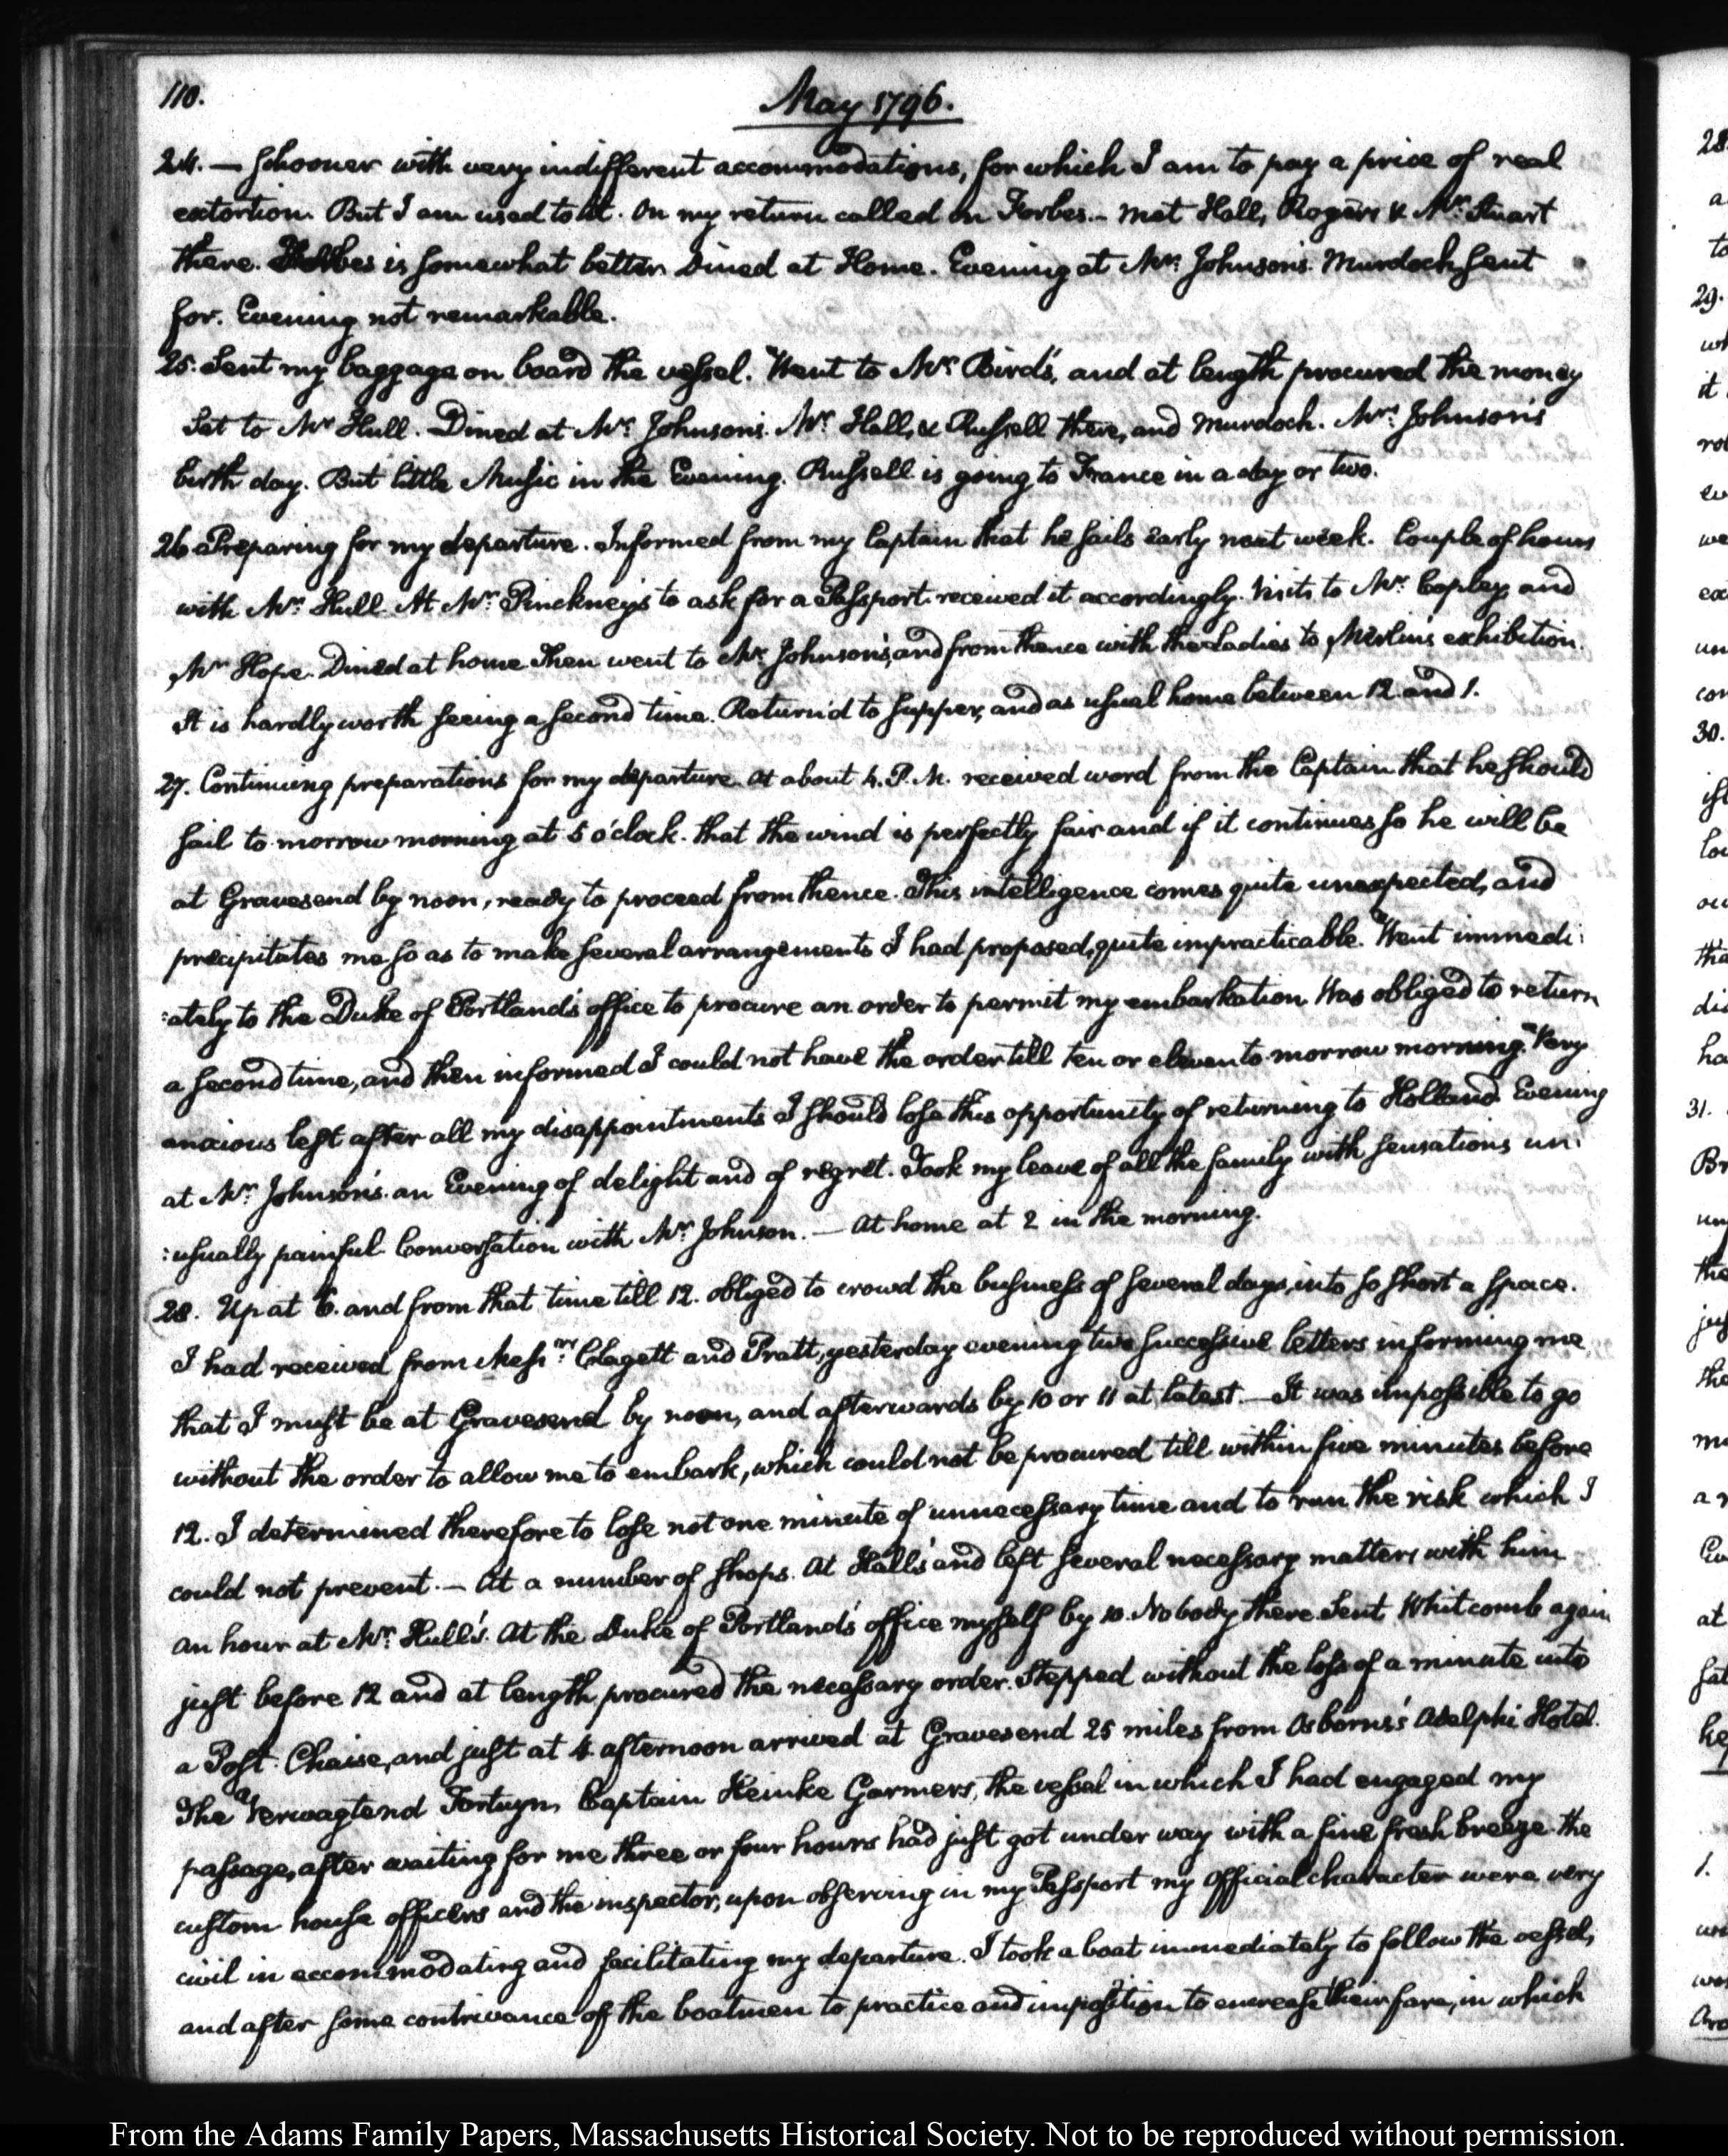 110.
May 1796.
24. — Schooner with very indifferent accommodations, for which I am to pay a price of real
extortion. But I am used to it. On my return called on Forbes. – Met Hall, Rogers & Mr. Stuart
there. Forbes is somewhat better. Dined at Home. Evening at Mr. Johnson's. Murdoch sent
for. Evening not remarkable.
25. Sent my baggage on board the vessel. Went to Mr. Bird's, and at length procured the money
Sat to Mr Hull. Dined at Mr. Johnson's. Mr. Hall, & Russell there, and Murdoch. Mrs. Johnson's
birth day. But little Music in the Evening. Russell is going to France in a day or two.
26 Preparing for my departure. Informed from my Captain that he sails early next week. Couple of hours
with Mr. Hull. At Mr. Pinckney's to ask for a Passport. received it accordingly. Visits to Mr. Copley, and
Mr. Hope. Dined at home. Then went to Mr. Johnson's, and from thence with the Ladies to Merlin's exhibition.
It is hardly worth seeing a second time. Return'd to supper, and as usual home between 12 and 1.
27. Continuing preparations for my departure. At about 4. P.M. received word from the Captain that he should
sail to-morrow morning at 5 o'clock. that the wind is perfectly fair and if it continues so he will be
at Gravesend by noon, ready to proceed from thence. This intelligence comes quite unexpected, and
precipitates me so as to make several arrangements I had proposed, quite impracticable. Went immedi:
:ately to the Duke of Portland's office to procure an order to permit my embarkation. Was obliged to return
a second time, and then informed I could not have the order till ten or eleven to-morrow morning. Very
anxious lest after all my disappointments I should lose this opportunity of returning to Holland. Evening
at Mr. Johnson's. an Evening of delight and of regret. Took my leave of all the family with sensations un:
:usually painful. Conversation with Mr. Johnson. — At home at 2 in the morning.
28. Up at 6. and from that time till 12. obliged to crowd the business of several days, into so short a space.
I had received from Messrs. Clagett and Pratt, yesterday evening two successive letters informing me
that I must be at Gravesend by noon, and afterwards by 10 or 11 at latest. — It was impossible to go
without the order to allow me to embark, which could not be procured till within five minutes before
12. I determined therefore to lose not one minute of unnecessary time and to run the risk which I
could not prevent. — At a number of shops. At Hall's and left several necessary matters with him
an hour at Mr. Hull's. At the Duke of Portland's office myself by 10. Nobody there. Sent Whitcomb again
just before 12 and at length procured the necessary order. Stepped without the loss of a minute into
a Post-Chaise, and just at 4 afternoon arrived at Gravesend 25 miles from Osborne's Adelphi Hotel.
The Verwagtend Fortuyn, Captain Heinke Garmers, the vessel in which I had engaged my
passage, after waiting for me three or four hours had just got under way with a fine fresh breeze. the
custom house officers and the inspector, upon observing in my Passport my official character were very
civil in accommodating and facilitating my departure. I took a boat immediately to follow the vessel,
and after some contrivance of the boatmen to practice and imposition to encrease their fare, in which
28.
29.
30.
31.
1.
From the Adams Family Papers, Massachusetts Historical Society. Not to be reproduced without permission.